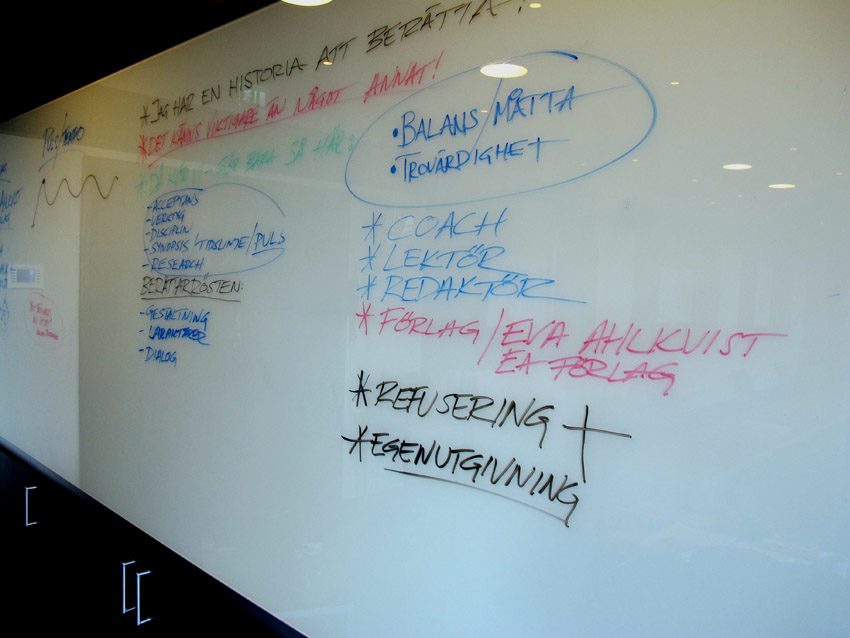 * JAG HAR EN HISTORIA ATT BERÄTTA!
* DET KÄNNS VIKTIGARE ÄN NÅGOT ANNAT!
BARA SÅ HÄR:
- ACCEPTANS
- VERKTYG
- DISCIPLIN
- SYNOPSIS/TIDSLINJE/PULS
- RESEARCH
BERÄTTARRÖSTEN:
- GESTALTNING
- KARAKTÄRER
- DIALOG
PULS/TEMPO
• BALANS/MÅTTA
• TROVÄRDIGHET
* COACH
* LEKTÖR
* REDAKTÖR
* FÖRLAG/EVA AHLKVIST
EA FÖRLAG
* REFUSERING +
* EGENUTGIVNING